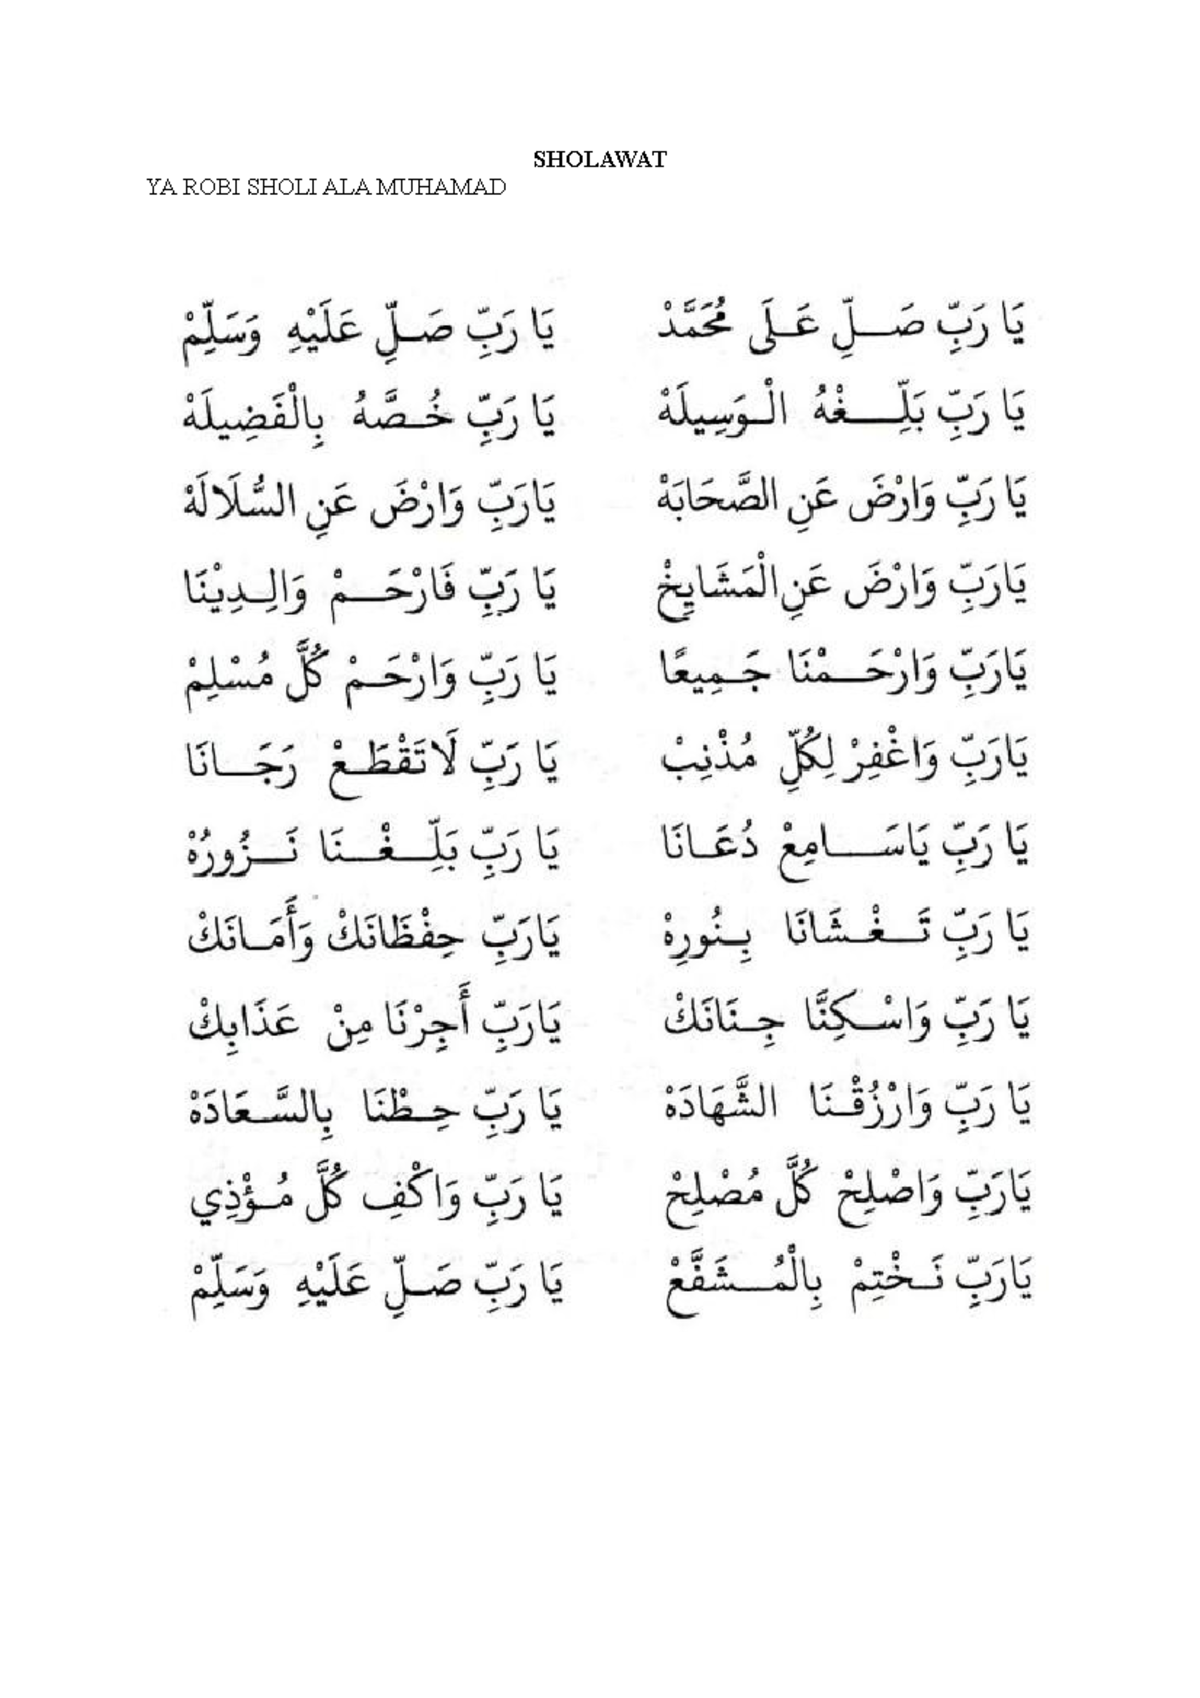 SHOLAWAT
YA ROBI SHOLI ALA MUHAMAD
يَا رَبِّ صَلِّ عَلَى مُحَمَّدْ يَا رَبِّ صَلِّ عَلَيْهِ وَسَلِّمْ
يَا رَبِّ بَلِّغْهُ الْوَسِيلَهْ يَا رَبِّ خُصَّهُ بِالْفَضِيلَهْ
يَا رَبِّ وَارْضَ عَنِ الصَّحَابَهْ يَارَبِّ وَارْضَ عَنِ السُّلَالَهْ
يَارَبِّ وَارْضَ عَنِ الْمَشَايِخْ يَا رَبِّ فَارْحَمْ وَالِدِيْنَا
يَارَبِّ وَارْحَمْنَا جَمِيعًا يَا رَبِّ وَارْحَمْ كُلَّ مُسْلِمْ
يَارَبِّ وَاغْفِرْ لِكُلِّ مُذْنِبْ يَا رَبِّ لَا تَقْطَعْ رَجَانَا
يَا رَبِّ يَاسَامِعْ دُعَانَا يَا رَبِّ بَلِّغْنَا نَزُورُهْ
يَا رَبِّ تَغْشَانَا بِنُورِهْ يَارَبِّ حِفْظَانَكْ وَأَمَانَكْ
يَا رَبِّ وَاسْكِنَّا جِنَانَكْ يَارَبِّ أَجِرْنَا مِنْ عَذَابِكْ
يَا رَبِّ وَارْزُقْنَا الشَّهَادَهْ يَا رَبِّ حِطْنَا بِالسَّعَادَهْ
يَارَبِّ وَاصْلِحْ كُلَّ مُصْلِحْ يَا رَبِّ وَاكْفِ كُلَّ مُؤْذِي
يَارَبِّ نَخْتِمْ بِالْمُشَفَّعْ يَا رَبِّ صَلِّ عَلَيْهِ وَسَلِّمْ